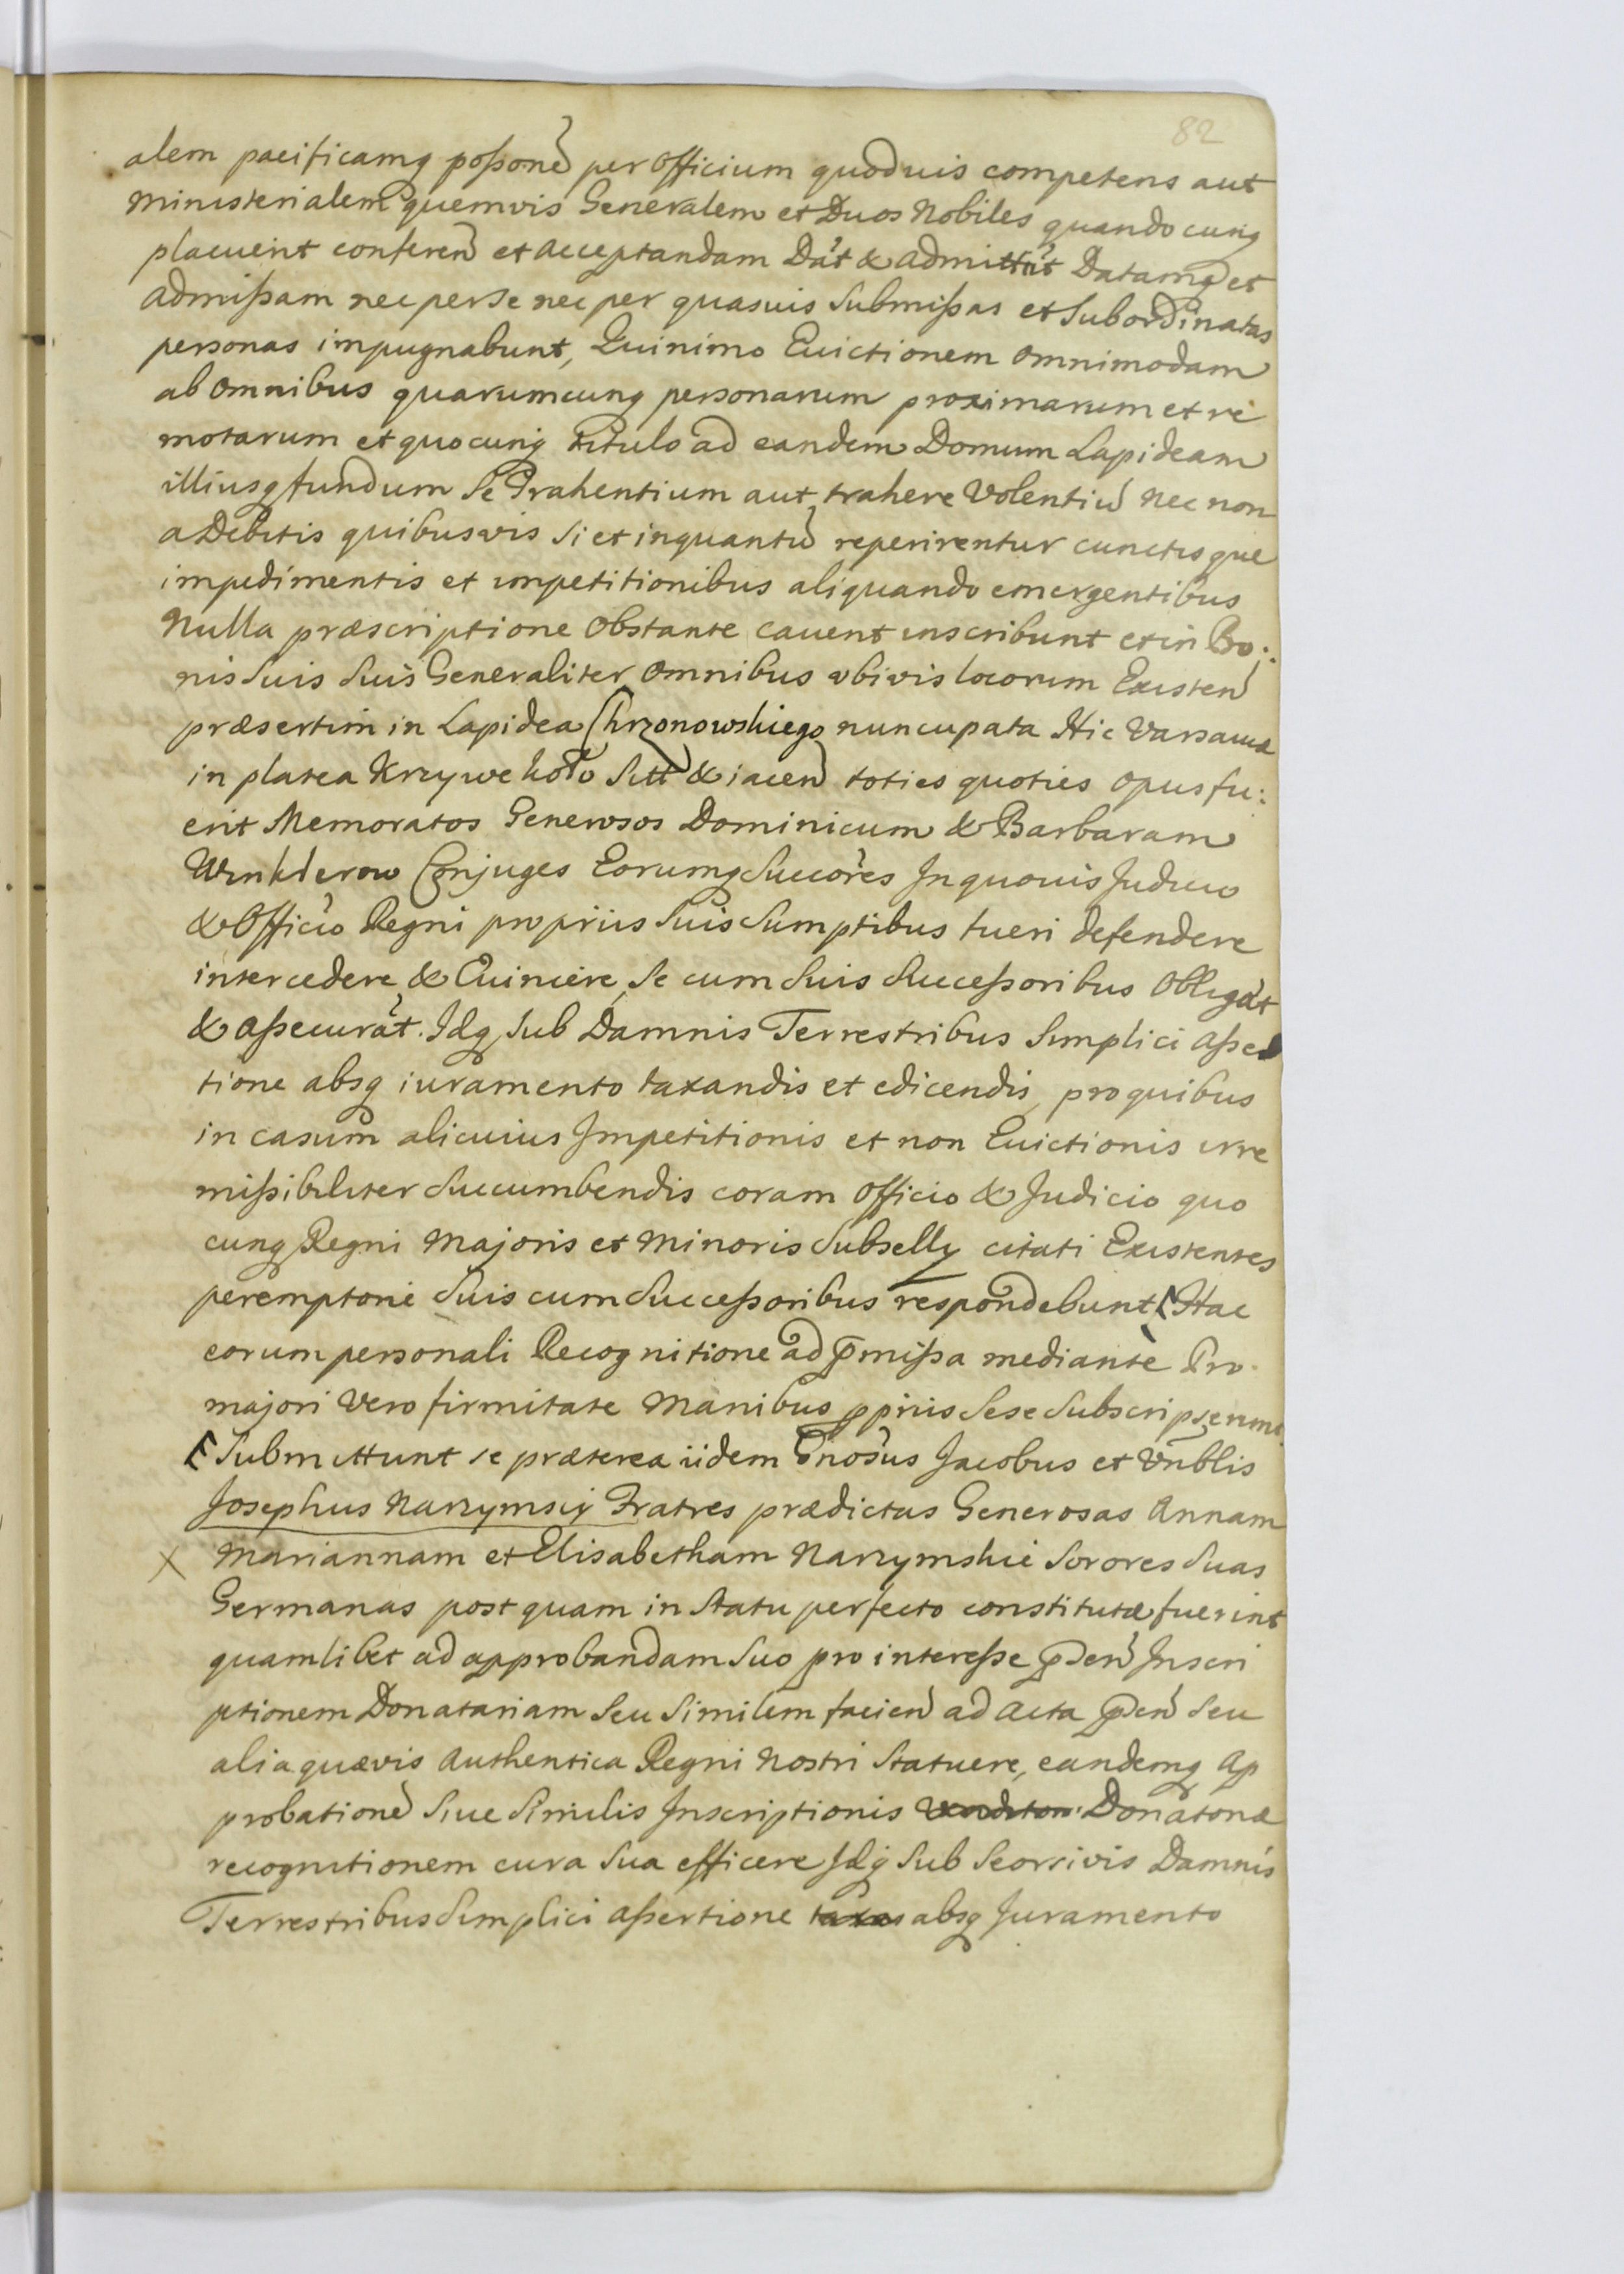 82
alem pacificamq poßone per Officium quoduis competens aut
Ministerialem quemvis Generalem et Duos Nobiles quandocunq
placuerit conferen et acceptandam Dat & admittut Datamq et
admißam nec per se nec per quasuis Submißas et Subordinatas
personas impugnabunt, Quinimo Evictionem omnimodam
ab omnibus quarumcunq personarum proximarum et re
motarum et quocunq titulo ad eandem Domum Lapideam
illiusq fundum Se Trahentium aut trahere Volentiu nec non
a Debitis quibusvis Si et inquantu reperirentur cunctisque
impedimentis et impetitionibus aliquando emergentibus
Nulla præscriptione Obstante cauent inscribunt et in Bo:
nis Suis Suis Generaliter omnibus ubivis locorum Existen
præsertim in Lapidea Chrzonowskiego nuncupata Hic Varsauiæ
in platea Krzywe koło Sitt & iacen toties quoties opus fu:
erit Memoratos Generosos Dominicum & Barbaram
Winklerow Conjuges Eorumq Succores In quouis Judicio
& Officio Regni proprijs Suis Sumptibus tueri defendere
intercedere & Euincere, Se cum Suis Succeßoribus Obligat
& aßecurat. Idq Sub Damnis Terrestribus Simplici aßer
tione absq iuramento taxandis et edicendis, pro quibus
in casum alicuius Impetitionis et non Euictionis irre
mißibiliter Succumbendis coram Officio & Judicio quo
cunq Regni Majoris et Minoris Subselly citati Existentes
peremptorie Suis cum Succeßoribus respondebunt, Hac
eorum personali Recognitione ad pmißa mediante Pro
majori Vero firmitate Manibus ppriis Sese Subscripserunt.
Submittunt se præterea iidem Gnosus Jacobus et Vnblis
Josephus Narzymscy Fratres prædictas Generosas Annam
Mariannam et Elisabetham Narzymskie Sorores Suas
Germanas post quam in Statu perfecto constitutæ fuerint
quamlibet ad approbandam Suo pro intereße pden Inscri
ptionem Donatariam Seu Similem facien ad Acta pden Seu
alia quævis Authentica Regni Nostri Statuere, eandemq Ap
probatione Siue Similis Inscriptionis Donatoriæ
recognitionem cura Sua efficere Idq Sub Seorsivis Damnis
Terrestribus Simplici aßertione absq Juramento